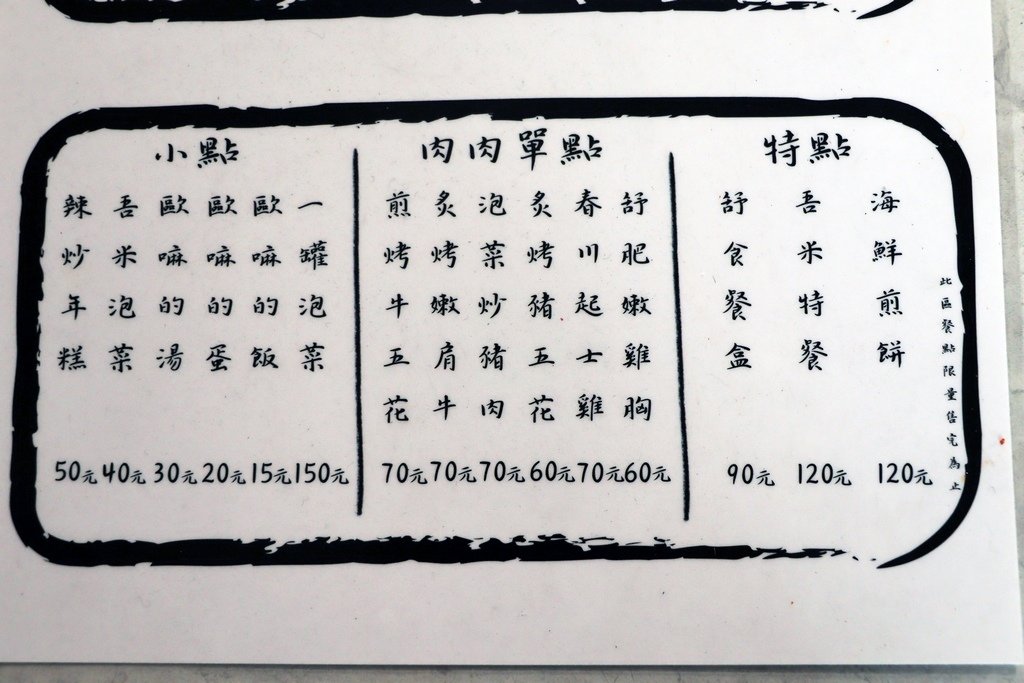 特點
海鮮煎餅
120元
吾米特餐
120元
舒食餐盒
90元
此區餐點限量售完為止
肉肉單點
舒肥嫩雞胸
60元
春川起士雞
70元
炙烤豬五花
60元
泡菜炒豬肉
70元
炙烤嫩肩牛
70元
煎烤牛五花
70元
小點
一罐泡菜
150元
歐嘛的飯
15元
歐嘛的蛋
20元
歐嘛的湯
30元
吾米泡菜
40元
辣炒年糕
50元